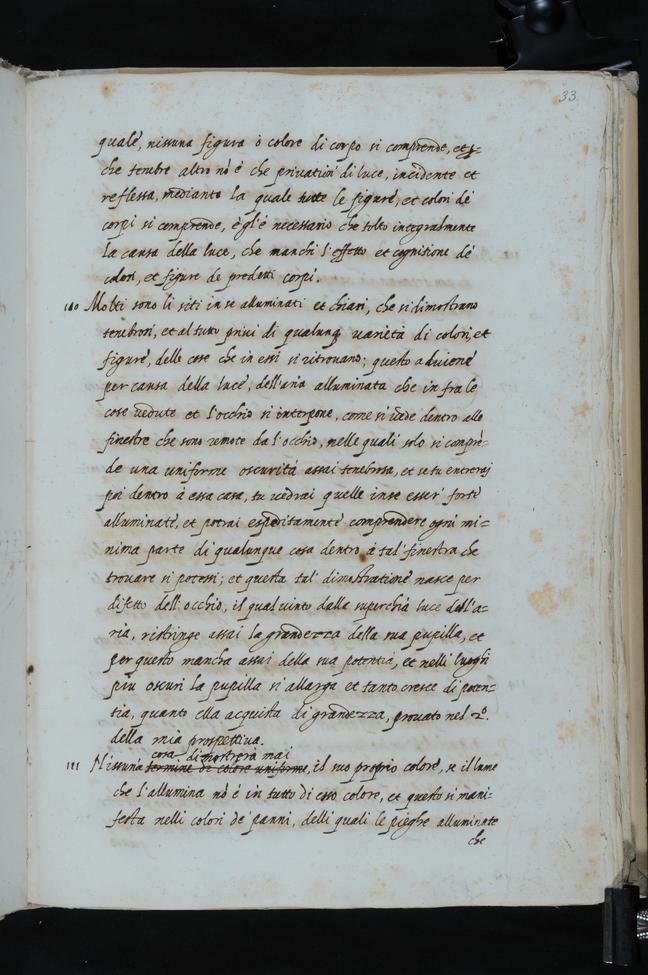 33
quale, nissuna figura ò colore di corpo si comprende,
che tenebre altro nõ é che privation di luce, incidente et
reflessa, mediante la quale tutte le figure, et colori dé
corpi si comprende, è gl'é necessario che tolto integralmente
la causa della luce, che manchi l'effetto et cognitione dé
colori, et figure de predetti corpi.
180 Molti sono li siti in se alluminati et chiari, che si dimostrano
tenebrosi, et al tutto privi di qualunq varietà di colori, et
figure, delle cose che in essi si ritrovano; questo adviene
per causa della luce, dell'aria alluminata che in fra le
cose vedute et l'occhio si interpone, come si vede dentro alle
finestre che sono remote da l'occhio, nelle quali solo si comprē-
de una uniforme oscurità assai tenebrosa, et se tu entrerai
poi dentro à essa casa, tu vedrai quelle in se esser forte
alluminate, et potrai espeditamente comprendere ogni mi=
nima parte di qualunque cosa dentro à tal' finestra che
trovare si potessi; et questa tal' dimostratione nasce per
difetto dell'occhio, il qual vinto dalla superchia luce dell'a=
ria, ristringe assai la grandezza della sua pupilla, et
per questo mancha assai della sua potentia, et nelli luoghi
piu oscuri la pupilla si allarga et tanto cresce di poten=
tia, quanto ella acquista di grandezza, provato nel 2º.
della mia prospettiva.
cosa dimostrerà mai
181 Nissuna termine di colore uniforme, il suo proprio colore, se il lume
che l'allumina nõ é in tutto di esso colore, et questo si mani=
festa nelli colori de' panni, delli quali le pieghe alluminate
che